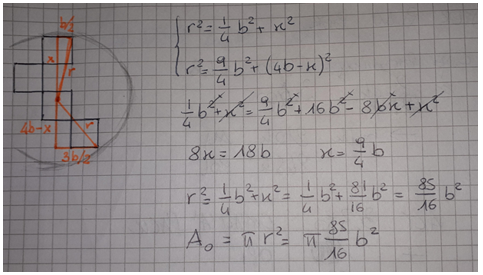 b/2
x
r
4b-x
r
3b/2
r² = 1/4 b² + x²
r² = 9/4 b² + (4b-x)²
1/4 b² + x² = 9/4 b² + 16b² - 8bx + x²
8x = 18b x = 9/4 b
r² = 1/4 b² + x² = 1/4 b² + 81/16 b² = 85/16 b²
A₀ = π r² = π 85/16 b²